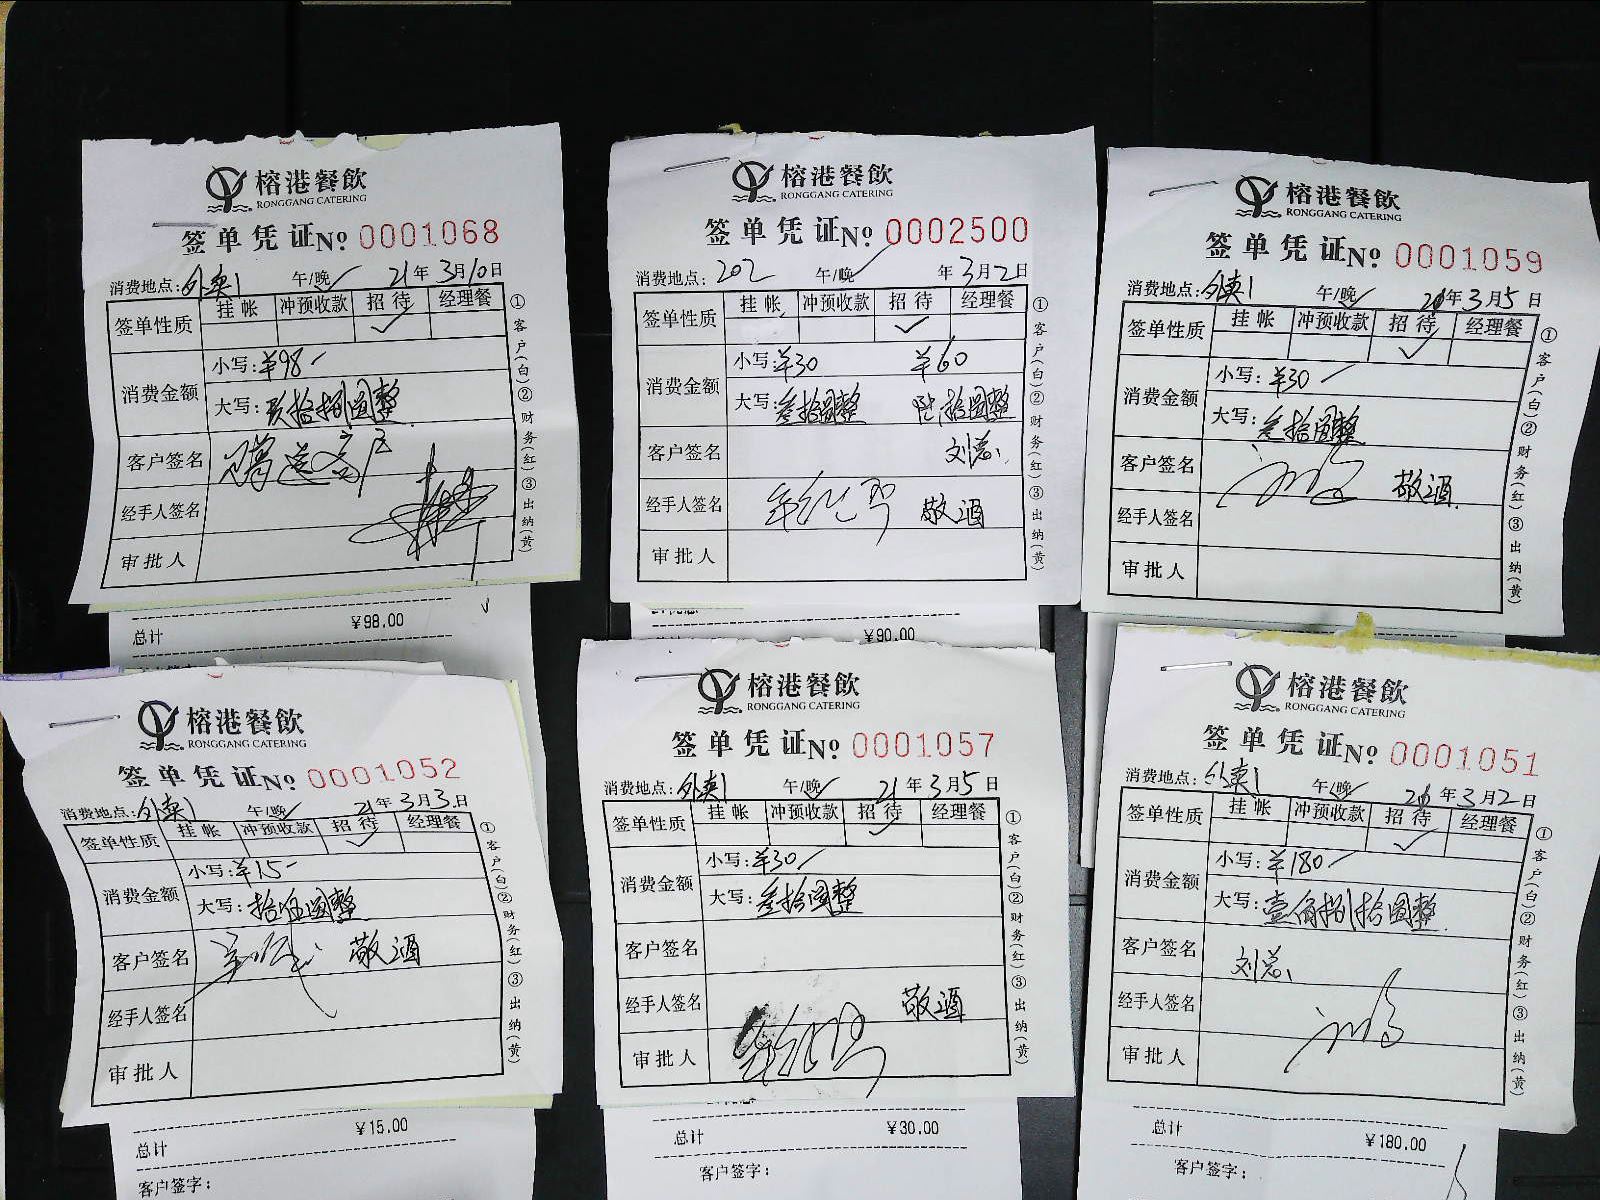 榕港餐飲
RONGGANG CATERING
签单凭证№ 0001068
消费地点：外卖1 午/晚✓ 21年3月10日
签单性质 挂帐 冲预收款 招待 经理餐
✓
消费金额 小写：¥98-
大写：玖拾捌圆整
客户签名 赠送客户
经手人签名
审批人
①客户(白)②财务(红)③出纳(黄)
总计 ¥98.00
榕港餐飲
RONGGANG CATERING
签单凭证№ 0002500
消费地点：202 午/晚✓ 年3月2日
签单性质 挂帐 冲预收款 招待 经理餐
✓
消费金额 小写：¥30 ¥60
大写：叁拾圆整 陆拾圆整
客户签名 刘总
经手人签名 敬酒
审批人
①客户(白)②财务(红)③出纳(黄)
总计 ¥90.00
榕港餐飲
RONGGANG CATERING
签单凭证№ 0001059
消费地点：外卖1 午/晚✓ 21年3月5日
签单性质 挂帐 冲预收款 招待 经理餐
✓
消费金额 小写：¥30-
大写：叁拾圆整
客户签名 敬酒
经手人签名
审批人
①客户(白)②财务(红)③出纳(黄)
榕港餐飲
RONGGANG CATERING
签单凭证№ 0001052
消费地点：外卖1 午/晚✓ 21年3月3日
签单性质 挂帐 冲预收款 招待 经理餐
✓
消费金额 小写：¥15-
大写：拾伍圆整
客户签名 敬酒
经手人签名
审批人
①客户(白)②财务(红)③出纳(黄)
总计 ¥15.00
客户签字：
榕港餐飲
RONGGANG CATERING
签单凭证№ 0001057
消费地点：外卖1 午/晚✓ 21年3月5日
签单性质 挂帐 冲预收款 招待 经理餐
✓
消费金额 小写：¥30-
大写：叁拾圆整
客户签名
经手人签名 敬酒
审批人
①客户(白)②财务(红)③出纳(黄)
总计 ¥30.00
客户签字：
榕港餐飲
RONGGANG CATERING
签单凭证№ 0001051
消费地点：外卖1 午/晚✓ 年3月2日
签单性质 挂帐 冲预收款 招待 经理餐
✓
消费金额 小写：¥180-
大写：壹佰捌拾圆整
客户签名 刘总
经手人签名
审批人
①客户(白)②财务(红)③出纳(黄)
总计 ¥180.00
客户签字：